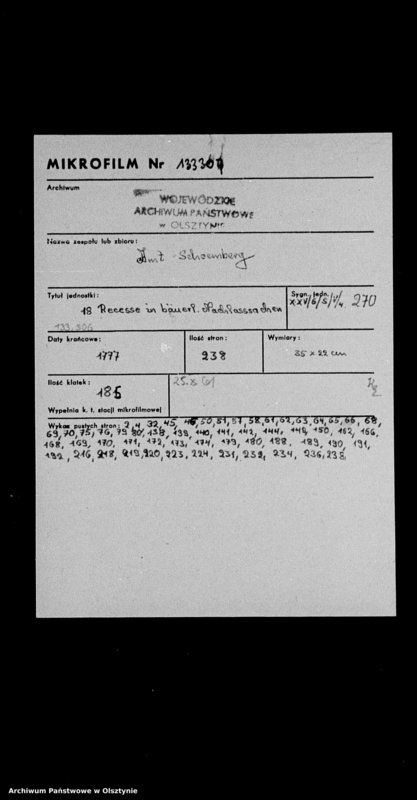 MIKROFILM Nr 133307
Archiwum
WOJEWÓDZKIE
ARCHIWUM PAŃSTWOWE
w OLSZTYNIE
Nazwa zespołu lub zbioru:
Amt Schoenberg
Tytuł jednostki:
18 Recesse in bäuerl. Nachlasssachen
133.306
Sygn. jedn.
XXVI/6/5/V/4. 270
Daty krańcowe:
1777
Ilość stron:
238
Wymiary:
35 x 22 cm
Ilość klatek:
185
Wypełnia k. t. stacji mikrofilmowej
Wykaz pustych stron: 2, 4, 32, 45, 46, 50, 51, 57, 58, 61, 62, 63, 64, 65, 66, 68,
69, 70, 75, 76, 79, 80, 138, 139, 140, 141, 142, 144, 148, 150, 162, 166,
168, 169, 170, 171, 172, 173, 174, 179, 180, 188, 189, 190, 191,
192, 216, 218, 219, 220, 223, 224, 231, 232, 234, 236, 238
Archiwum Państwowe w Olsztynie